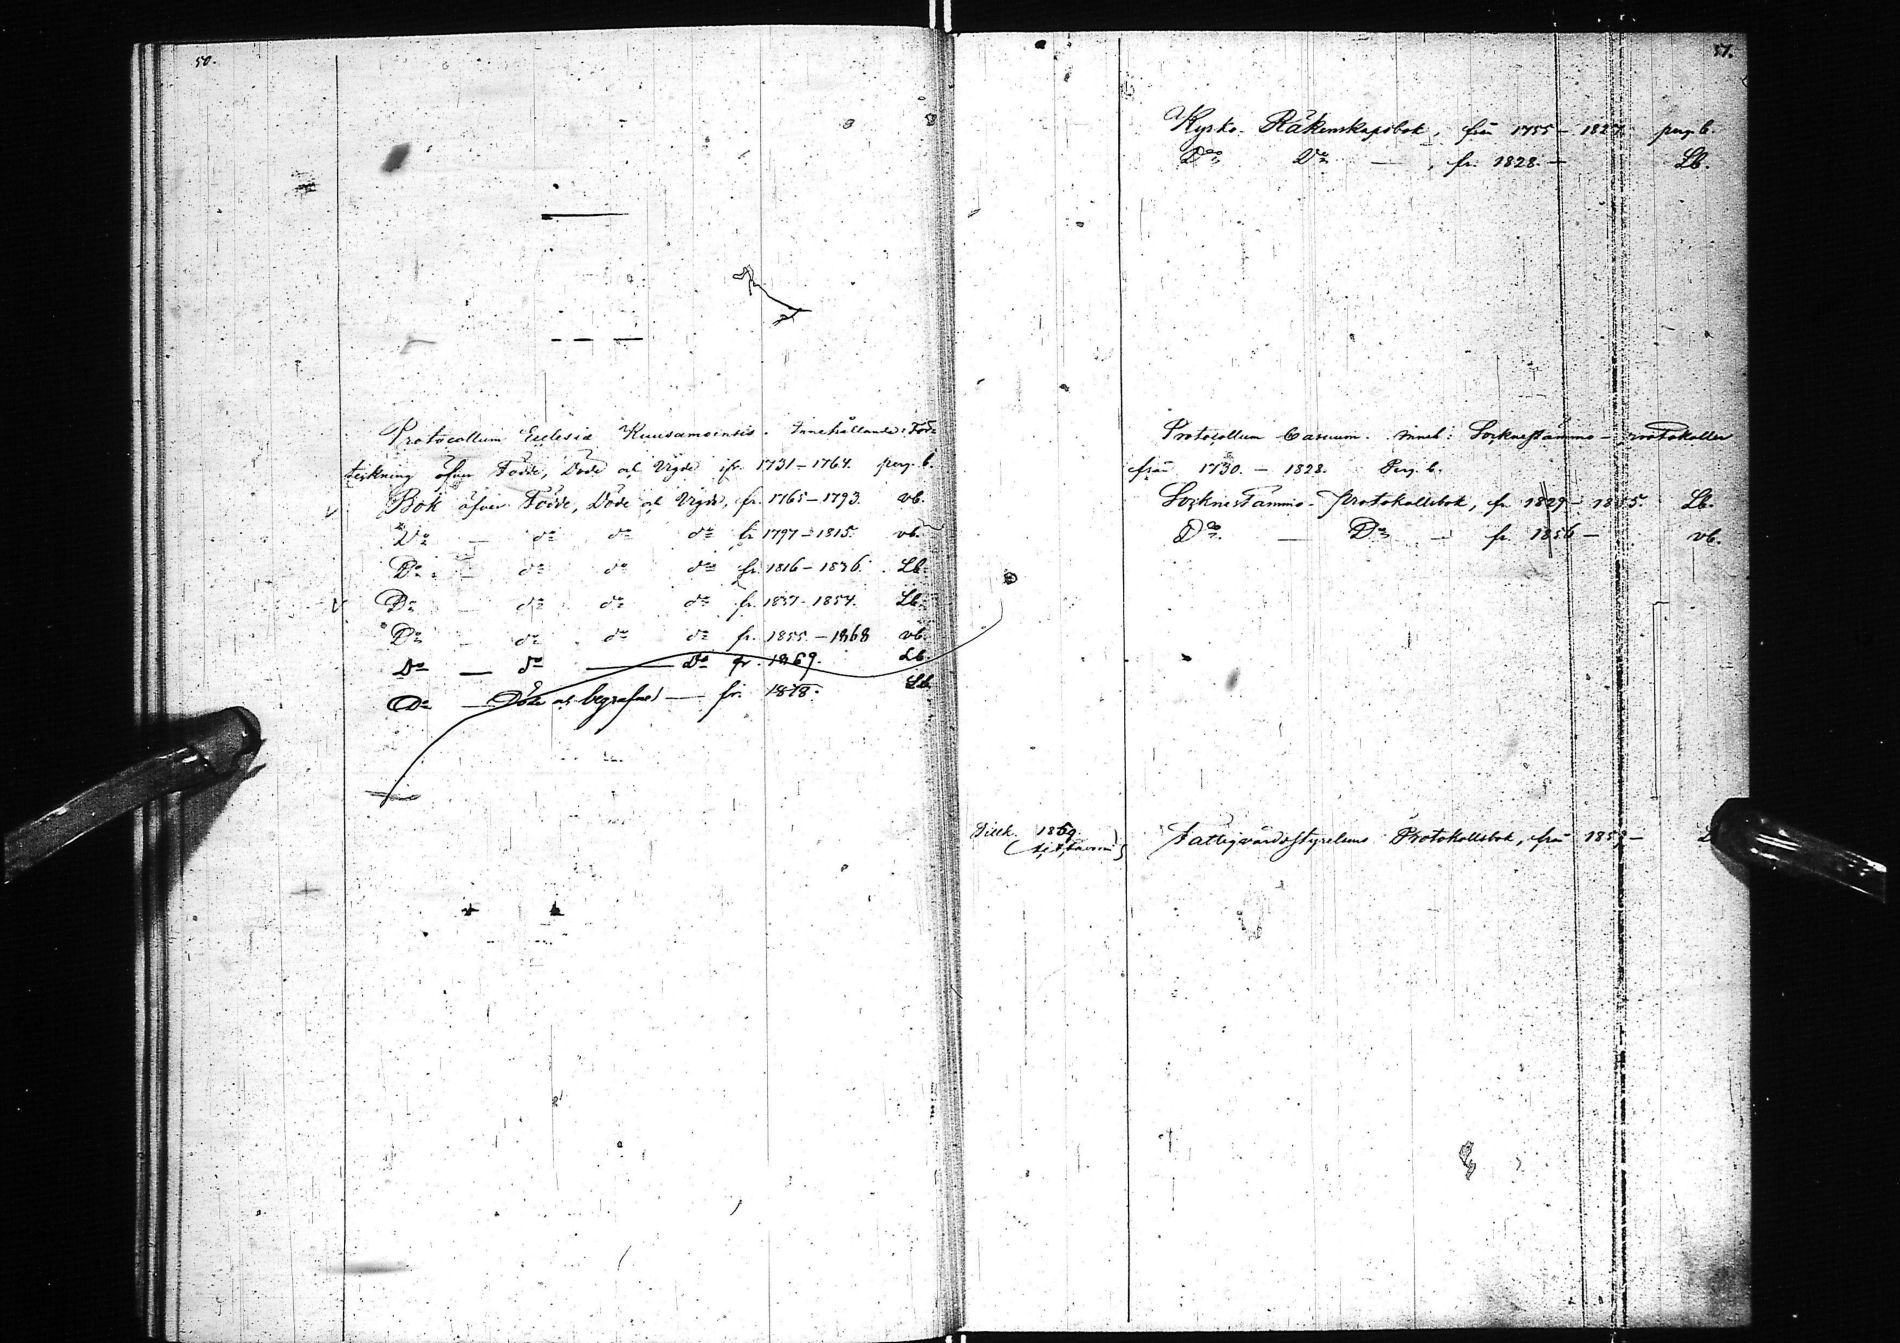 50.
Protocollum Eclesiæ Kuusamoensis. Innehållande: För-
teckning öfver Födde, Döde och Vigde ifr. 1731-1764. perg. b.
Bok öfver Födde, Döde och Vigde, fr. 1765-1793. vb.
Do — do do do fr. 1797-1815. vb.
Do — do do do fr. 1816-1836. Lb.
Do — do do do fr. 1837-1854. Lb.
Do — do do do fr. 1855-1868 vb.
Do — do — Do fr. 1869. Lb.
Do — Döde och begrafne — fr. 1878. Lb.
51.
Kyrko-Räkenskapsbok, från 1755-1827. perg. b.
Do Do — , fr. 1828.— Lb.
Protocollum Casuum. inneh: Sockenstämmo-protokoller
från 1730.-1828. Perg. b.
Sockenstämmo-protokollsbok, fr. 1829-1855. Lb.
Do. — Do — fr. 1856— vb.
1869.
Fattigvårdsstyrelsens Protokollsbok, från